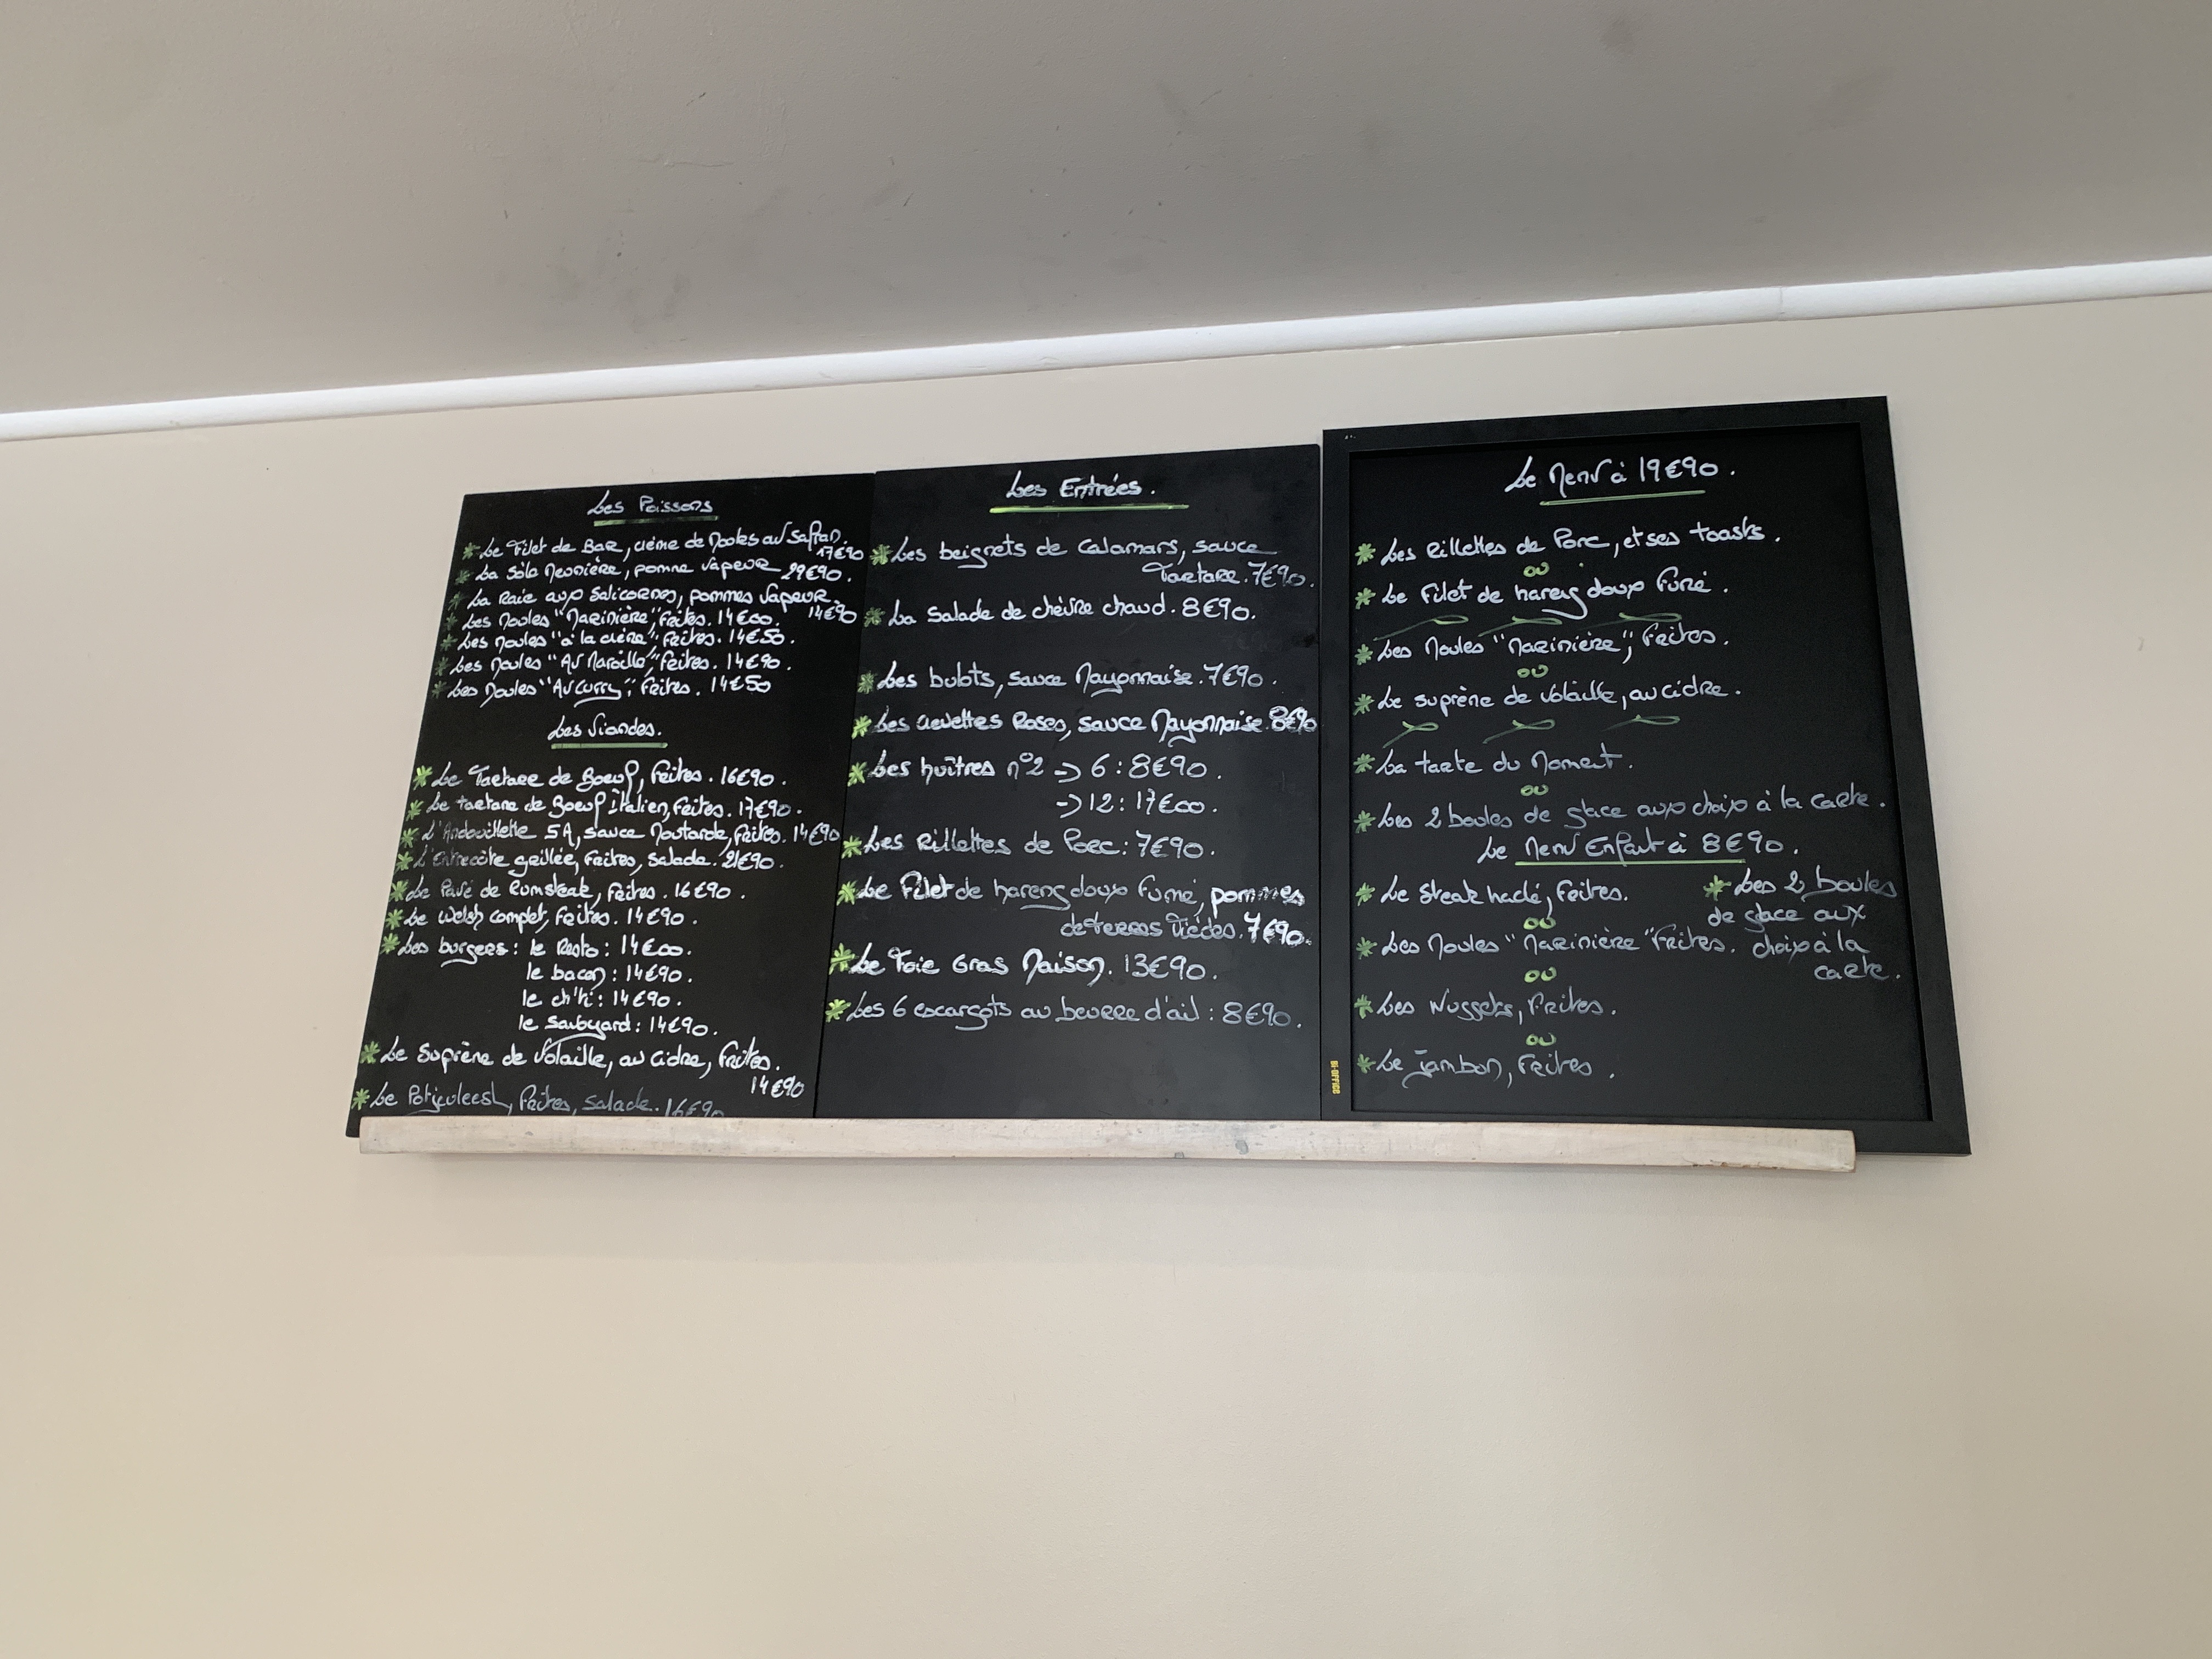 Les Poissons
* Le Filet de Bar, crème de Moules au Safran.
17€90
* La Sole Meunière, pomme vapeur 29€90.
* La Raie aux Salicornes, pommes vapeur.
14€90
* Les Moules "Marinière", Frites. 14€00.
* Les Moules "à la crème", Frites. 14€50.
* Les Moules "Au Maroille", Frites. 14€90.
* Les Moules "Au Curry", Frites. 14€50
Les Viandes.
* Le Tartare de Boeuf, Frites. 16€90.
* Le tartare de Boeuf Italien, Frites. 17€90.
* L'Andouillette 5A, sauce Moutarde, Frites. 14€90
* L'Entrecôte grillée, Frites, Salade. 21€90.
* Le Pavé de Rumsteak, Frites. 16€90.
* Le Welsh complet, Frites. 14€90.
* Les burgers : le Resto : 14€00.
le bacon : 14€90.
le ch'ti : 14€90.
le savoyard : 14€90.
* Le Suprême de Volaille, au Cidre, Frites.
14€90
* Le Potjevleesch, Frites, Salade. 16€90
Les Entrées.
* Les beignets de Calamars, sauce
Tartare. 7€90.
* La Salade de chèvre chaud. 8€90.
* Les bulots, sauce Mayonnaise. 7€90.
* Les crevettes Roses, sauce Mayonnaise. 8€90
* Les huîtres n°2 -> 6 : 8€90.
-> 12 : 17€00.
* Les Rillettes de Porc : 7€90.
* Le Filet de hareng doux Fumé, pommes
de terres Tièdes. 7€90.
* Le Foie Gras Maison. 13€90.
* Les 6 escargots au beurre d'ail : 8€90.
Le Menu à 19€90.
* Les Rillettes de Porc, et ses toasts.
ou
* Le Filet de hareng doux Fumé.
* Les Moules "Marinière", Frites.
ou
* Le suprême de Volaille, au cidre.
* La tarte du Moment.
ou
* Les 2 boules de glace aux choix à la carte.
Le Menu Enfant à 8€90.
* Le Steak haché, Frites.
ou
* Les Moules "Marinière" Frites.
ou
* Les Nuggets, Frites.
ou
* Le jambon, Frites.
* Les 2 boules
de glace aux
choix à la
carte.
BI-OFFICE